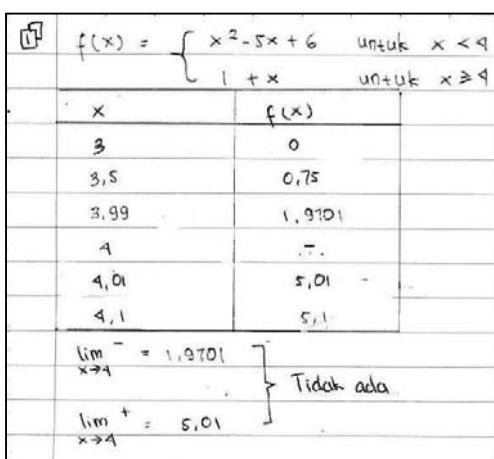 1 f(x) = { x² - 5x + 6 untuk x < 4
1 + x untuk x ≥ 4
x f(x)
3 0
3,5 0,75
3,99 1,9701
4 .-.
4,01 5,01
4,1 5,1
lim x→4 ⁻ = 1,9701
Tidak ada
lim x→4 ⁺ = 5,01